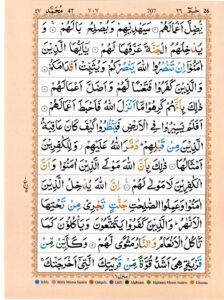 26 حٰمٓ ٢٦ ٧٠٧ 707 مُحَمَّد 47 ٤٧
يُّضِلَّ اَعْمَالَهُمْ ۝ سَيَهْدِيْهِمْ وَيُصْلِحُ بَالَهُمْ ۝ وَ
يُدْخِلُهُمُ الْجَنَّةَ عَرَّفَهَا لَهُمْ ۝ يٰۤاَيُّهَا الَّذِيْنَ
اٰمَنُوْۤا اِنْ تَنْصُرُوا اللّٰهَ يَنْصُرْكُمْ وَيُثَبِّتْ اَقْدَامَكُمْ ۝
وَالَّذِيْنَ كَفَرُوْا فَتَعْسًا لَّهُمْ وَاَضَلَّ اَعْمَالَهُمْ ۝
ذٰلِكَ بِاَنَّهُمْ كَرِهُوْا مَاۤ اَنْزَلَ اللّٰهُ فَاَحْبَطَ اَعْمَالَهُمْ ۝
اَفَلَمْ يَسِيْرُوْا فِي الْاَرْضِ فَيَنْظُرُوْا كَيْفَ كَانَ عَاقِبَةُ
الَّذِيْنَ مِنْ قَبْلِهِمْ ؕ دَمَّرَ اللّٰهُ عَلَيْهِمْ ؗ وَلِلْكٰفِرِيْنَ
اَمْثَالُهَا ۝ ذٰلِكَ بِاَنَّ اللّٰهَ مَوْلَى الَّذِيْنَ اٰمَنُوْا وَاَنَّ
الْكٰفِرِيْنَ لَا مَوْلٰى لَهُمْ ۝ اِنَّ اللّٰهَ يُدْخِلُ الَّذِيْنَ
اٰمَنُوْا وَعَمِلُوا الصّٰلِحٰتِ جَنّٰتٍ تَجْرِيْ مِنْ تَحْتِهَا
الْاَنْهٰرُ ؕ وَالَّذِيْنَ كَفَرُوْا يَتَمَتَّعُوْنَ وَيَاْكُلُوْنَ كَمَا
تَاْكُلُ الْاَنْعَامُ وَالنَّارُ مَثْوًى لَّهُمْ ۝ وَكَاَيِّنْ مِّنْ
قَرْيَةٍ هِيَ اَشَدُّ قُوَّةً مِّنْ قَرْيَتِكَ الَّتِيْۤ اَخْرَجَتْكَ ۚ